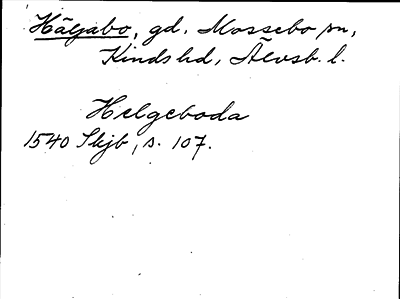 Häljabo, gd. Mossebo sn,
Kinds hd, Älvsb. l.
Helgeboda
1540 Skjb, s. 107.